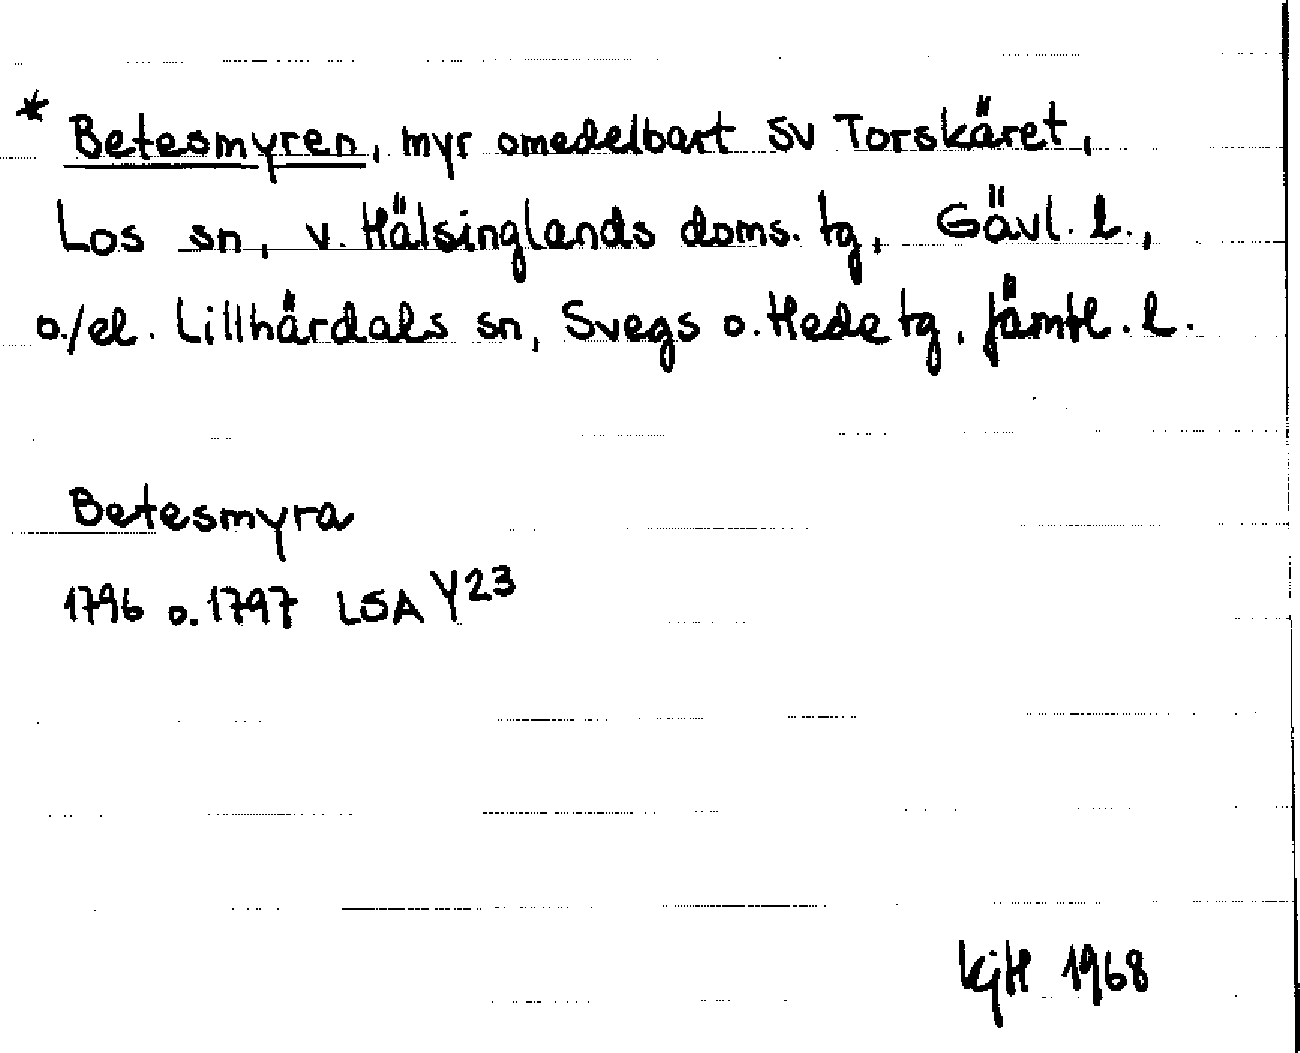 * Betesmyren, myr omedelbart SV Torskäret,
Los sn, v. Hälsinglands doms. tg, Gävl. l.,
o./el. Lillhärdals sn, Svegs o. Hede tg, Jämtl. l.
Betesmyra
1796 o. 1797 LSA Y23
KjH 1968